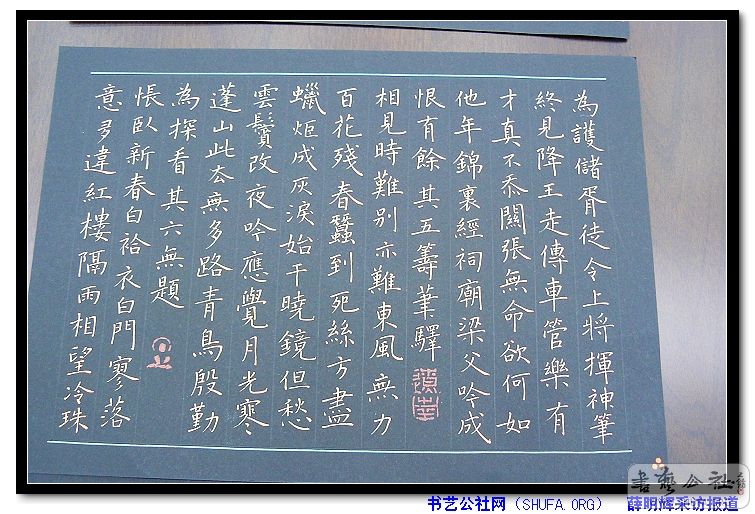 為護儲胥徒令上將揮神筆
終見降王走傳車管樂有
才真不忝關張無命欲何如
他年錦裏經祠廟梁父吟成
恨有餘其五籌筆驛
相見時難別亦難東風無力
百花殘春蠶到死絲方盡
蠟炬成灰淚始干曉鏡但愁
雲鬢改夜吟應覺月光寒
蓬山此去無多路青鳥殷勤
為探看其六無題
悵臥新春白袷衣白門寥落
意多違紅樓隔雨相望冷珠
书艺公社
书艺公社网（SHUFA.ORG） 薛明辉采访报道